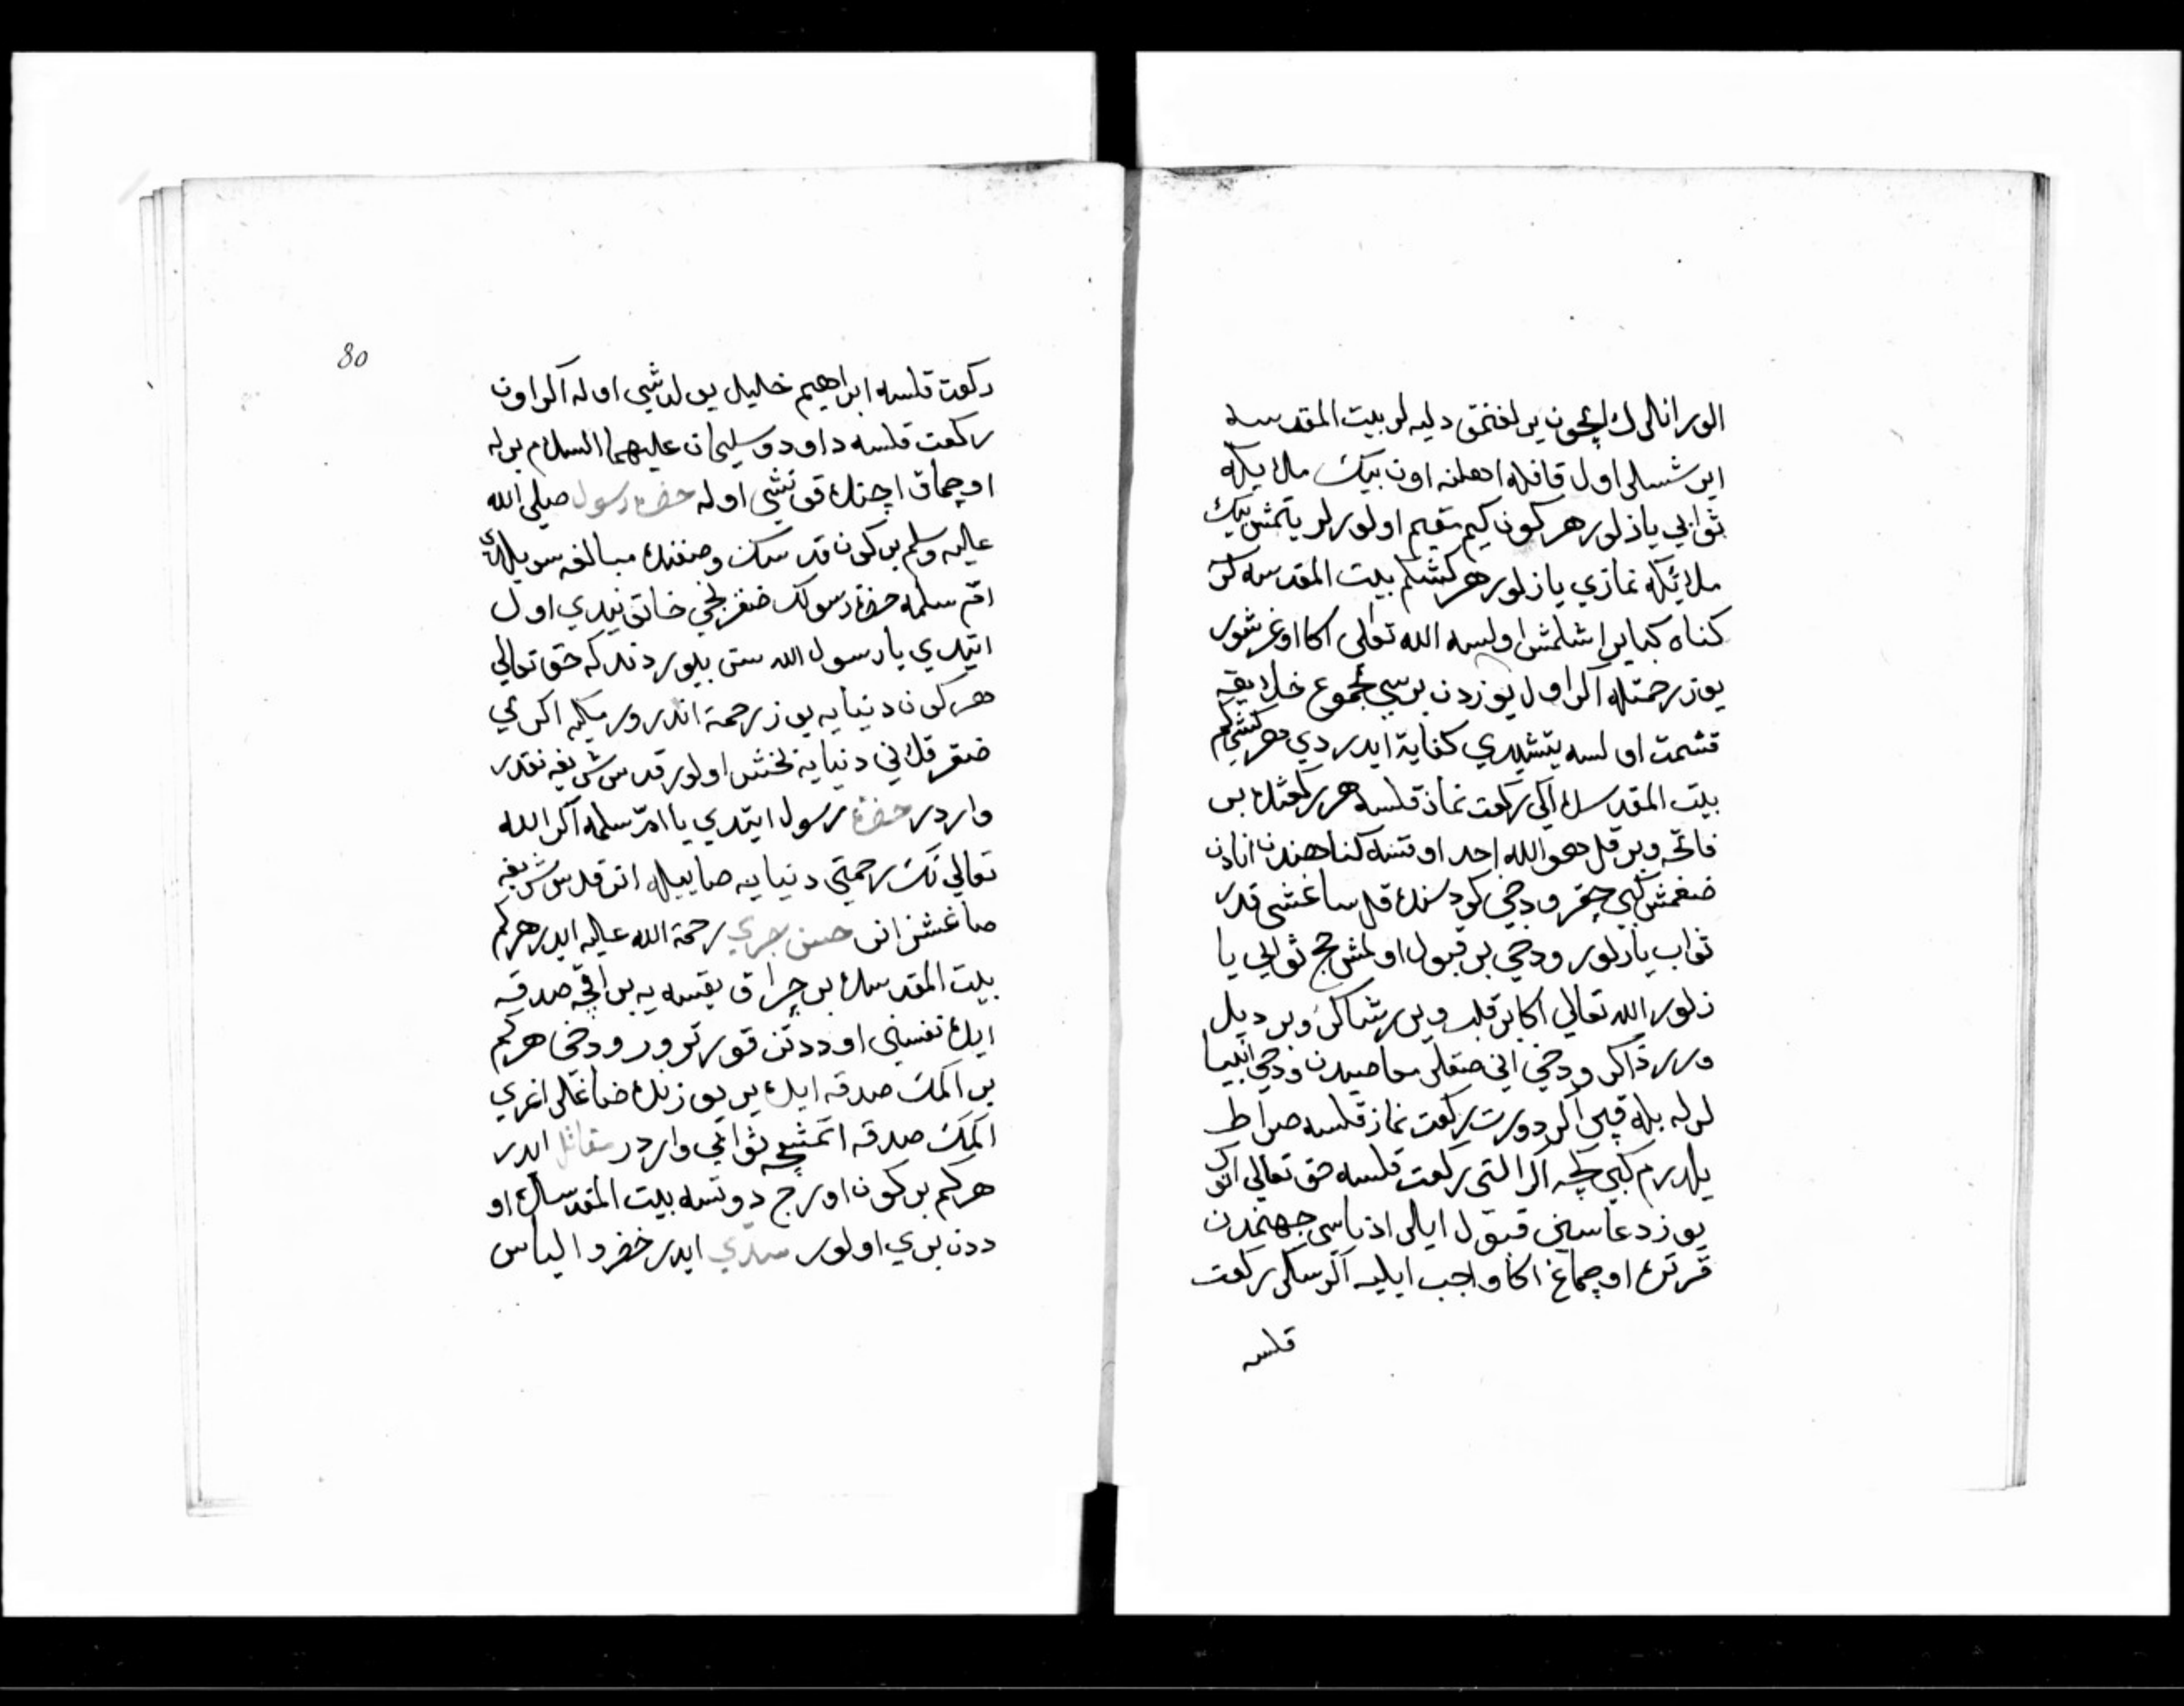 الور انلرك ايچون يرلغنمق دليه لر بيت المقدسه
ايرشسلر اول قافله اهلنه اون بيك ملايكه
ثوابي يازلور هر كون كيم مقيم اولورلر يتمش بيك
ملائكه نمازي يازلور هر كشكم بيت المقدسه كرر
كناه كباير اشلمش اولسه الله تعالى اكا اوغرشور
يوز رحمتله اكر اول يوزدن برسي مجموع خلايقه
قسمت اولسه يتشيدي كفاية ايدردي هر كشيكم
بيت المقدسده ايكي ركعت نماز قلسه هر ركعتده بر
فاتحه وبر قل هو الله احد اوقسه كناهندن انادن
ضغمش كبي چقر ودخي كودسنده قل ساغشي قدر
ثواب يازلور ودخي بر قبول اولمش حج ثوابي يا
زلور الله تعالي اكا بر قلب ويرر شاكر وبر ديل
ويرر ذاكر ودخي اني صقلر معاصيدن ودخي انبيا
لرله بله قپر اكر دورت ركعت نماز قلسه صراط
يلدرم كبي كچه اكر التي ركعت قلسه حق تعالي انك
يوز دعاسيني قبول ايلر ادناسي جهنمدن
قرتره اوچماغ اكا واجب ايليه اكر سكز ركعت
قلسه
80
ركعت قلسه ابراهيم خليل يولدشي اوله اكر اون
ركعت قلسه داود وسليمان عليهما السلام برله
اوچماق اچنده قونشي اوله حضرة رسول صلى الله
عليه وسلم بر كون قدسك وصفنده مبالغه سويلدي
ام سلمه حضرة رسولك ضغرلجي خاتونيدي اول
ايتدي يا رسول الله ستى بيلوردندكه حق تعالي
هر كون دنيايه يوز رحمة اندرور ميكيه اكرمي
ضقزقلك ني دنيايه بخش اولور قدس شريفه نقدر
واردر حضرة رسول ايتدي يا ام سلمه اكر الله
تعالي نك رحمتي دنيايه صاييله انن قدس شريفه
صاغشز انر حسن بصري رحمة الله عليه ايدر هر كم
بيت المقدسده بر چراق يقسه يه بر اقچه صدقه
ايده نفسني اوددن قورترور ودخي هر كم
بر اكمك صدقه ايده يير يوزنده ضاغلر اغري
اكمك صدقه اتمشچه ثوابي واردر مقاتل ايدر
هر كم بر كون اورج دوتسه بيت المقدسده او
ددن بري اولور سدّي ايدر خضر و الياس